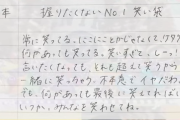 本 握りたくないNo.1 笑い袋
常に笑ってる。にこにことかじゃなくて、ワラワラ
何があっても笑ってる。笑いすぎて、しーっ!
言いたくなっても、それも超えて笑うから
一緒に笑っちゃう。不本意でイヤだわ。
でも、何があっても最後に笑えてれば
いっか。みんなを笑わせてね。